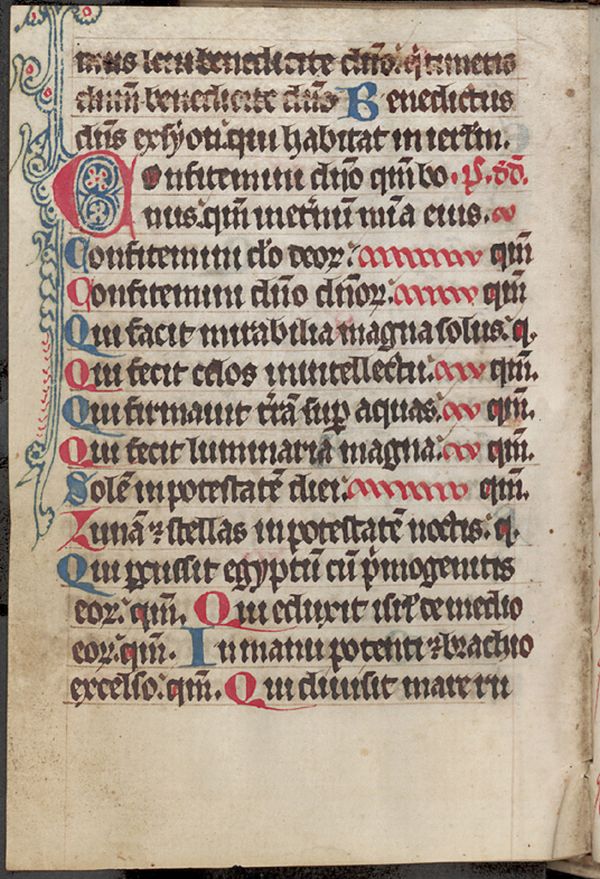 mus leui benedicite dn̄o. q̄ timetis
dn̄m̄ benedicite dn̄o Benedictus
dn̄s ex syon. qui habitat in ierl̄m.
Confitemini dn̄o qm̄ bo. p̄. dd̄.
nus. qm̄ in et̄nū mīa eius.
Confitemini dō deoꝝ. qm̄
Confitemini dn̄o dn̄oꝝ. qm̄
Qui facit mirabilia magna solus. q.
Qui fecit celos in intellectu. qm̄.
Qui firmauit tr̄ā suꝑ aquas. qm̄.
Qui fecit luminaria magna. qm̄.
Solē in potestatē diei. qm̄.
Lunā ⁊ stellas in potestatē noctis. q.
Qui ꝑcussit egyptū cū p̄mogenitis
eoꝝ. qm̄. Qui eduxit isrl̄ de medio
eoꝝ. qm̄. In manu potenti ⁊ brachio
excelso. qm̄. Qui diuisit mare ru